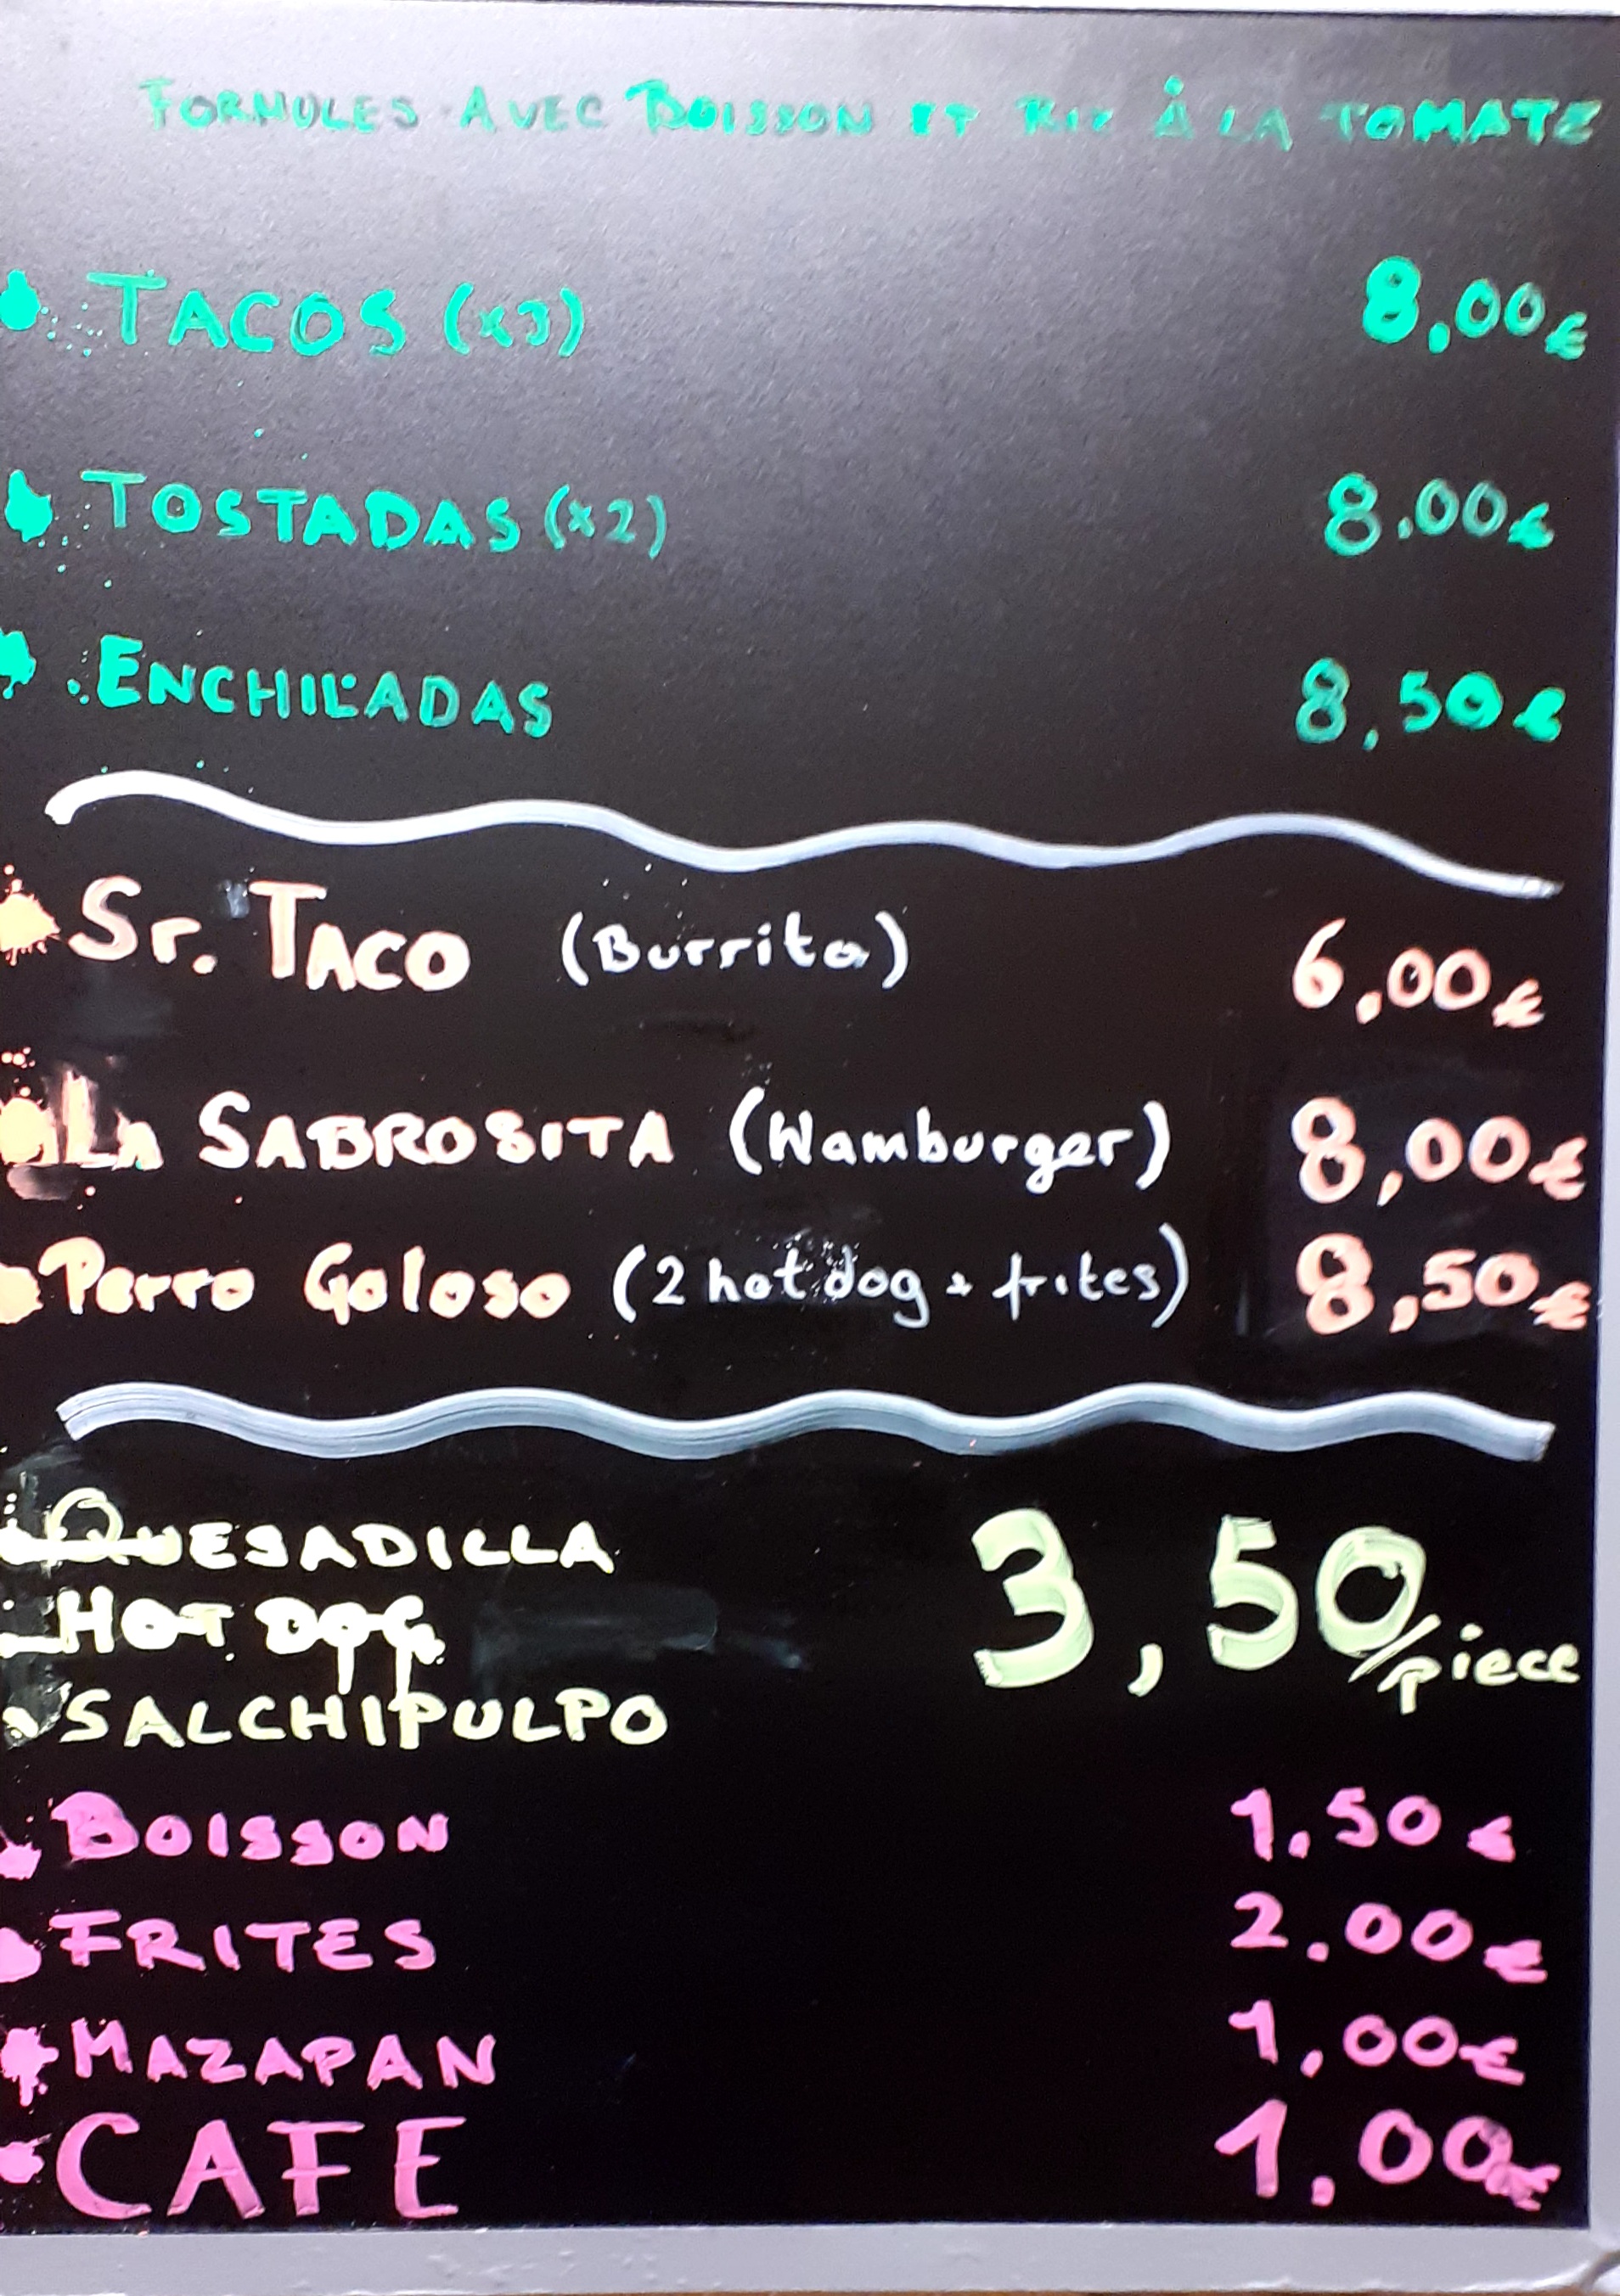 FORMULES AVEC BOISSON ET RIZ À LA TOMATE
TACOS (x3) 8,00€
TOSTADAS (x2) 8.00€
ENCHILADAS 8,50€
Sr. TACO (Burrito) 6,00€
LA SABROSITA (Hamburger) 8,00€
Perro Goloso (2 hot dog + frites) 8,50€
QUESADILLA
HOT DOG 3,50/piece
SALCHIPULPO
BOISSON 1,50€
FRITES 2.00€
MAZAPAN 1,00€
CAFE 1,00€